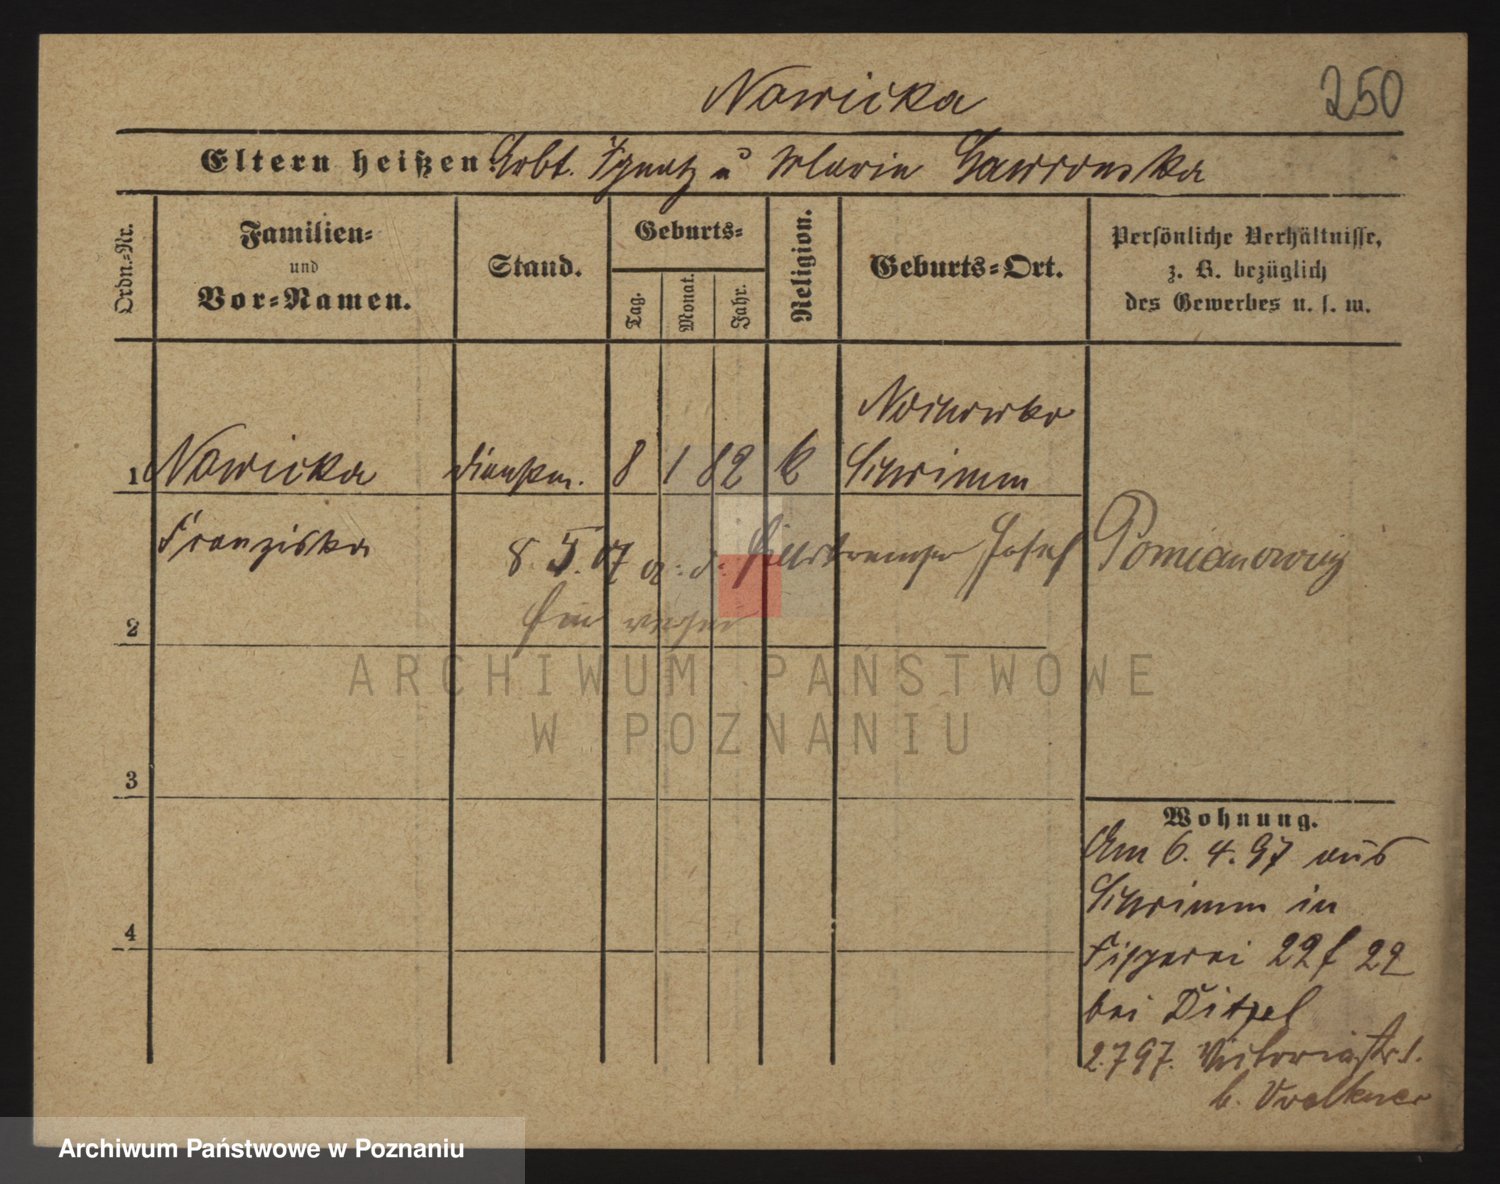 Nowicka
250
Eltern heißen: Arbt. Ignatz u Marie Gawronska
Ordn.-Nr.
Familien-
und
Vor-Namen.
Stand.
Geburts-
Tag.
Monat.
Jahr.
Religion.
Geburts-Ort.
Persönliche Verhältnisse,
z. B. bezüglich
des Gewerbes u. s. w.
1 Nowicka Dienstm. 8 1 82 k Schrimm
Franziska
8. 5. 07 Josef Pomianowicz
2
ARCHIWUM PAŃSTWOWE
W POZNANIU
3
4
Wohnung.
Am 6. 4. 97 aus
Schrimm in
Fischerei 22
bei Ditzel
2.7 97. Victoriastr.
b.
Archiwum Państwowe w Poznaniu